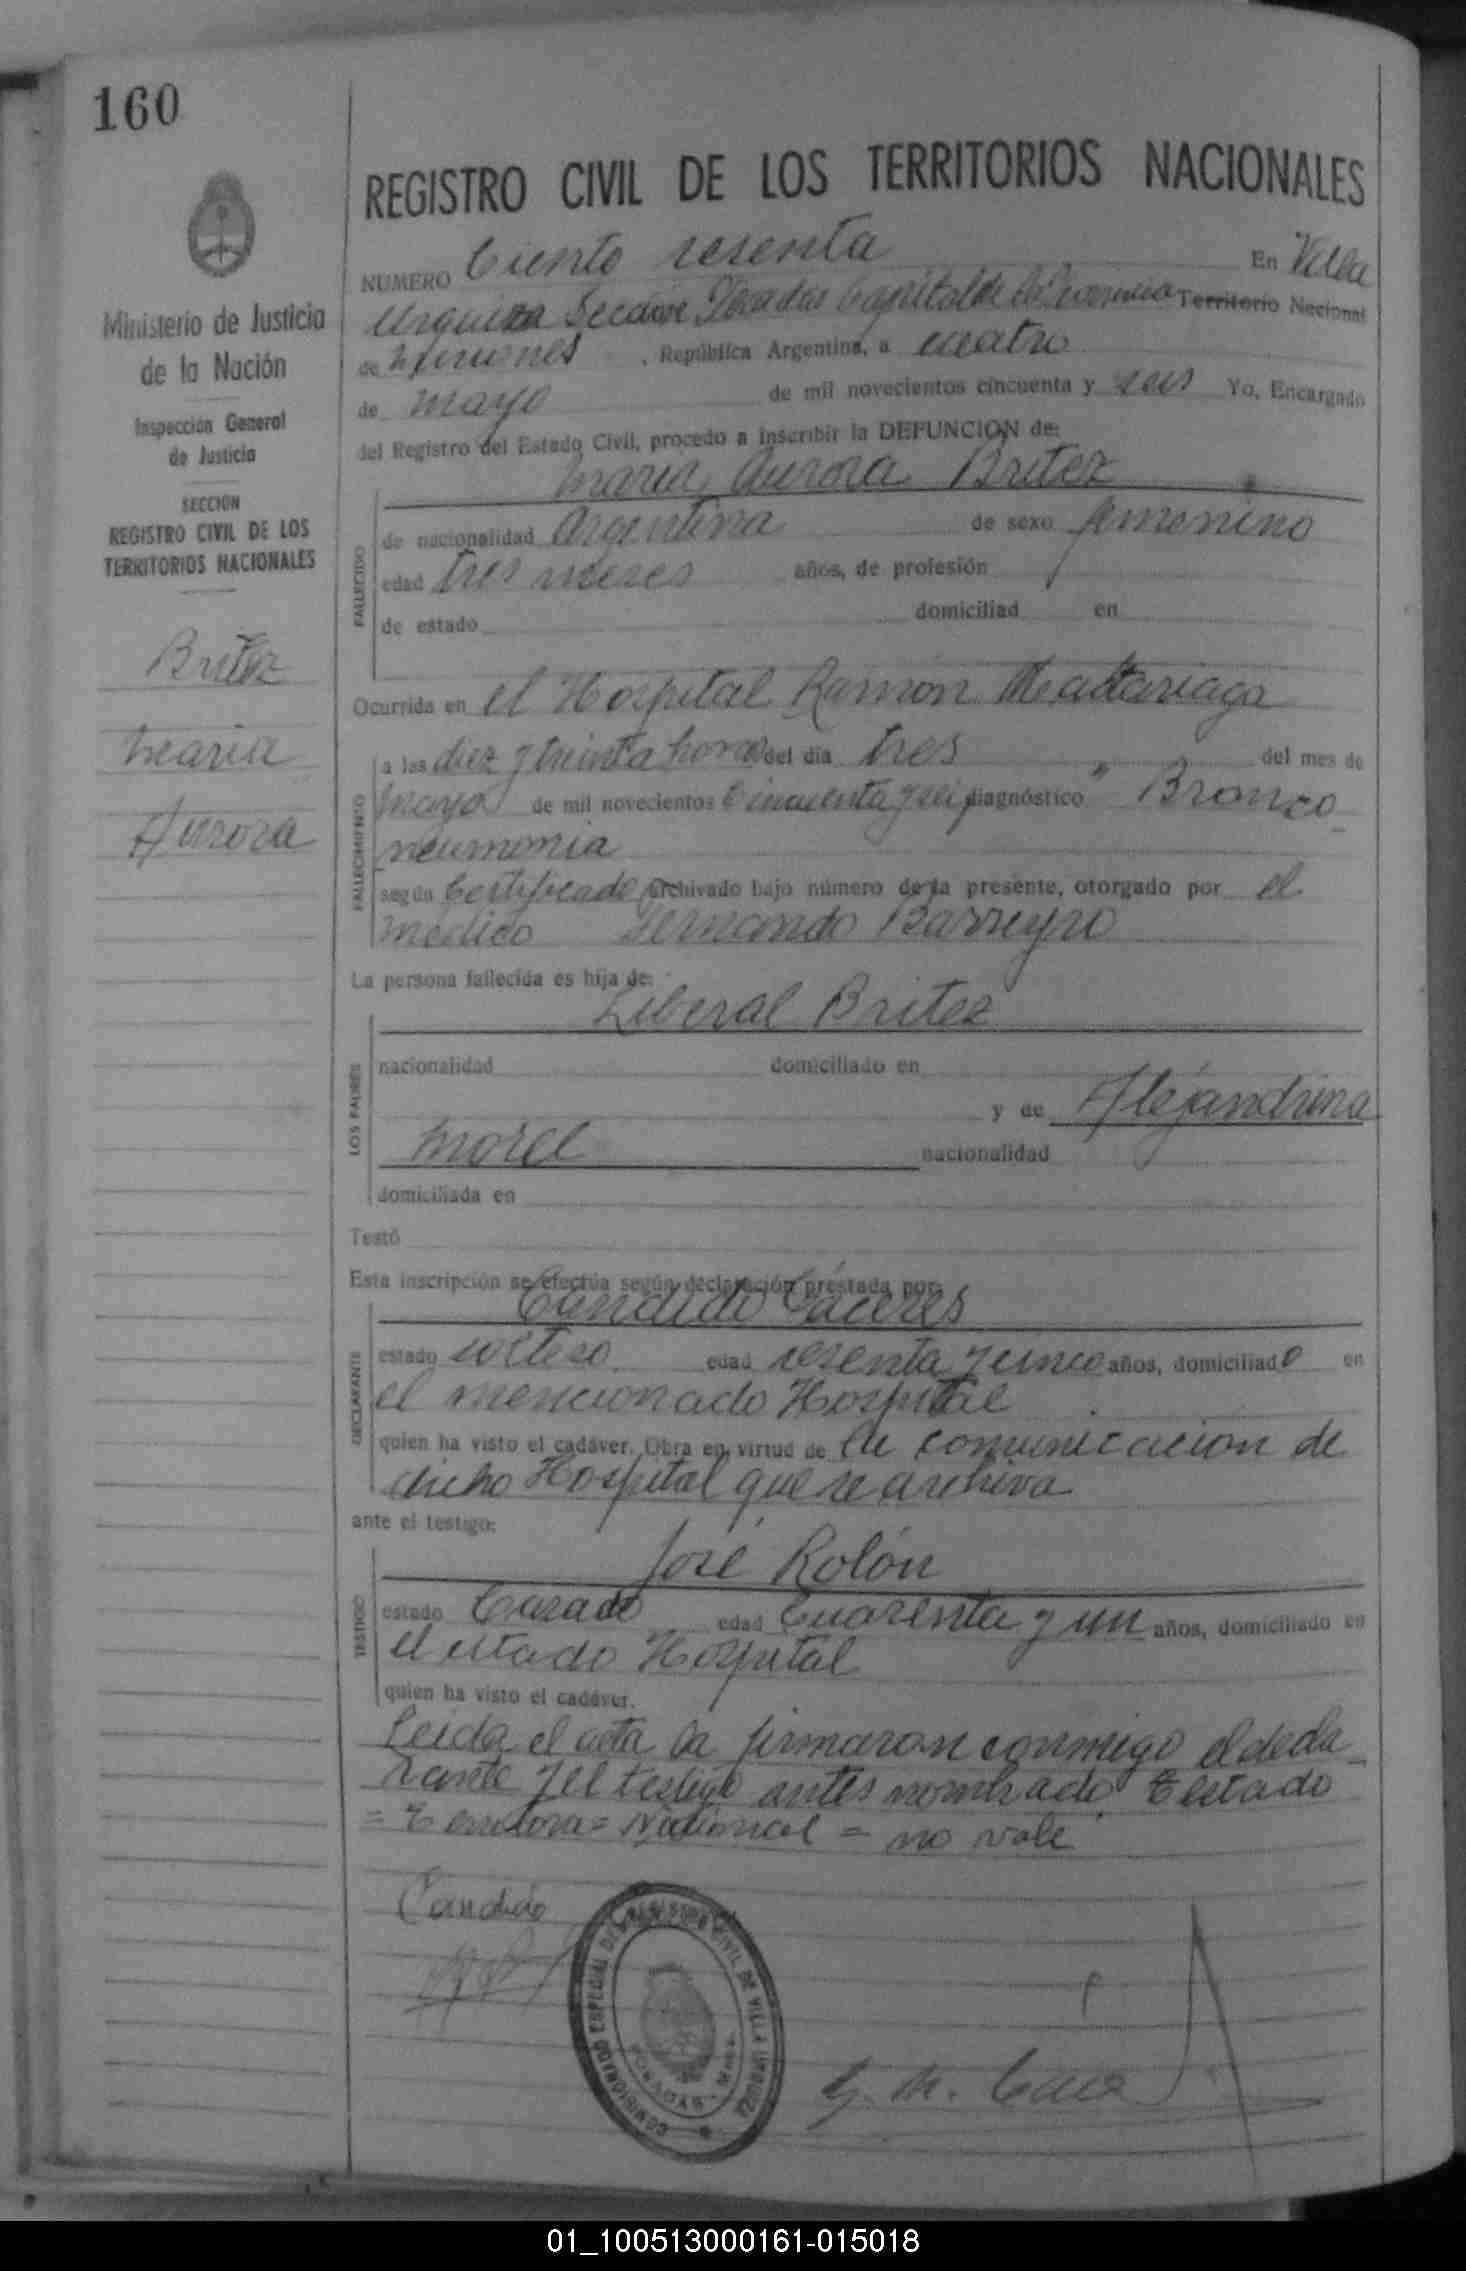 160
REGISTRO CIVIL DE LOS TERRITORIOS NACIONALES
NUMERO Ciento sesenta En Villa
Urquiza Sección Posadas Capital de la Provincia Territorio Nacional
de Misiones , República Argentina, a cuatro
de mayo de mil novecientos cincuenta y seis Yo, Encargado
del Registro del Estado Civil, procedo a inscribir la DEFUNCION de:
Ministerio de Justicia
de la Nación
Inspección General
de Justicia
SECCION
REGISTRO CIVIL DE LOS
TERRITORIOS NACIONALES
Britez
Maria
Aurora
FALLECIDO
Maria Aurora Britez
de nacionalidad Argentina de sexo femenino
edad tres meses años, de profesión
de estado domiciliad en
Ocurrida en el Hospital Ramón Madariaga
FALLECIMIENTO
a las diez y treinta horas del día tres del mes de
mayo de mil novecientos cincuenta y seis diagnóstico " Bronco
neumonia
según Certificado archivado bajo número de la presente, otorgado por el
médico Fernando Barreyro
La persona fallecida es hija de:
LOS PADRES
Liberal Britez
nacionalidad domiciliado en
y de Alejandrina
Morel nacionalidad
domiciliada en
Testó
Esta inscripción se efectúa según declaración préstada por:
DECLARANTE
Candido Cáceres
estado soltero edad sesenta y cinco años, domiciliado en
el mencionado Hospital
quien ha visto el cadáver. Obra en virtud de la comunicación de
dicho Hospital que se archiva
ante el testigo:
TESTIGO
José Rolón
estado Casado edad Cuarenta y un años, domiciliado en
el citado Hospital
quien ha visto el cadáver.
Leida el acta la firmaron conmigo el decla
rante y el testigo antes nombrado Testado
= Territorio = Nacional = no vale
Candido
COMISIONADO ESPECIAL DEL REGISTRO CIVIL DE VILLA URQUIZA
POSADAS - Mnes.
01_100513000161-015018